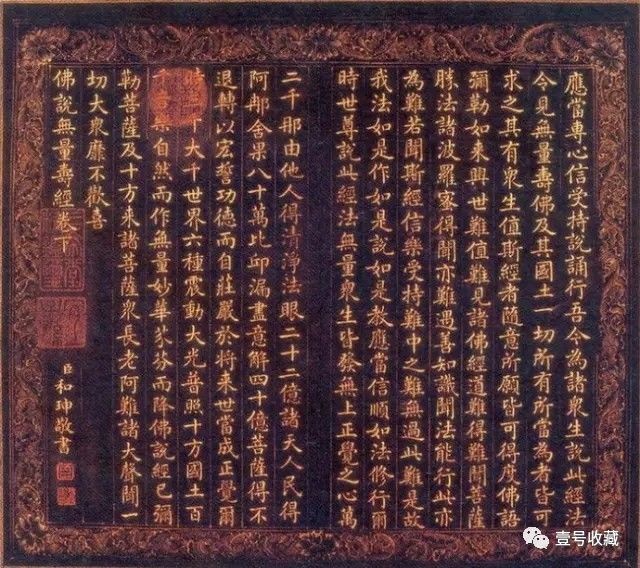 應當專心信受持說誦行吾今為諸衆生說此經法
今見無量壽佛及其國土一切所有所當為者皆可
求之其有衆生值斯經者隨意所願皆可得度佛語
彌勒如來興世難值難見諸佛經道難得難聞菩薩
勝法諸波羅蜜得聞亦難遇善知識聞法能行此亦
為難若聞斯經信樂受持難中之難無過此難是故
我法如是作如是說如是教應當信順如法修行爾
時世尊說此經法無量衆生皆發無上正覺之心萬
二千那由他人得清淨法眼二十二億諸天人民得
阿那舍果八十萬比邱漏盡意解四十億菩薩得不
退轉以宏誓功德而自莊嚴於將來世當成正覺爾
時三千大千世界六種震動大光普照十方國土百
千音樂自然而作無量妙華芬芬而降佛說經已彌
勒菩薩及十方來諸菩薩衆長老阿難諸大聲聞一
切大衆靡不歡喜
佛說無量壽經卷下
臣和珅敬書
壹号收藏